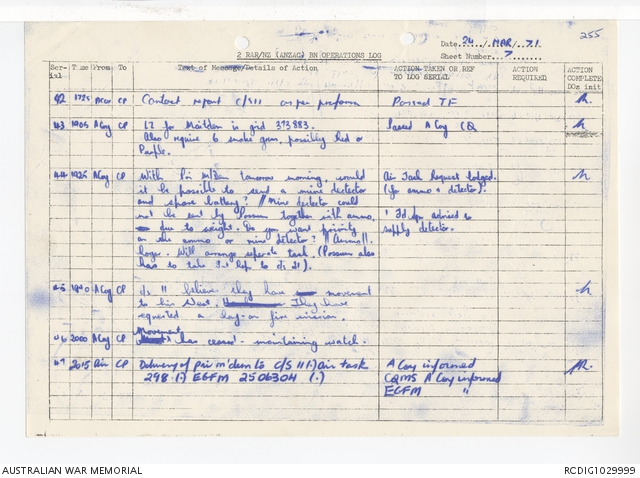 255
Date 24 / MAR / 71.
2 RAR/NZ (ANZAC) BN OPERATIONS LOG
Sheet Number 7
Ser-ial Time From To Text of Message/Details of Action ACTION TAKEN OR REF TO LOG SERIAL ACTION REQUIRED ACTION COMPLETE DOz init
42 1725 ACoy CP Contact report C/S 11 as per proforma Passed TF
43 1905 ACoy CP LZ for Maidden is grid 373883. Passed A Coy CQ
Also require 6 smoke gren, possibly Red or
Purple.
44 1925 ACoy CP With Pri Mdden tomorrow morning, would Air Task Request lodged.
it be possible to send a mine detector (for ammo & detector).
and spare battery? // Mine detector could
not be sent by Possum together with ammo, Fd advised to
due to weight. Do you want priority supply detector.
on the ammo or mine detector? // Ammo //.
Roger. Will arrange seperate task. (Possum also
has to take Int Rep to C/S 21).
45 ACoy CP C/s 11 believe they have movement
to his West. They have
requested a lay-on fire mission.
46 2000 ACoy CP Movement has ceased - maintaining watch.
47 2015 Air CP Delivery of pri m'dem to C/S 11 (.) Air task A Coy informed
298 (.) EGFM 250630H (.) CQMS A Coy informed
EGFM "
AUSTRALIAN WAR MEMORIAL RCDIG1029999